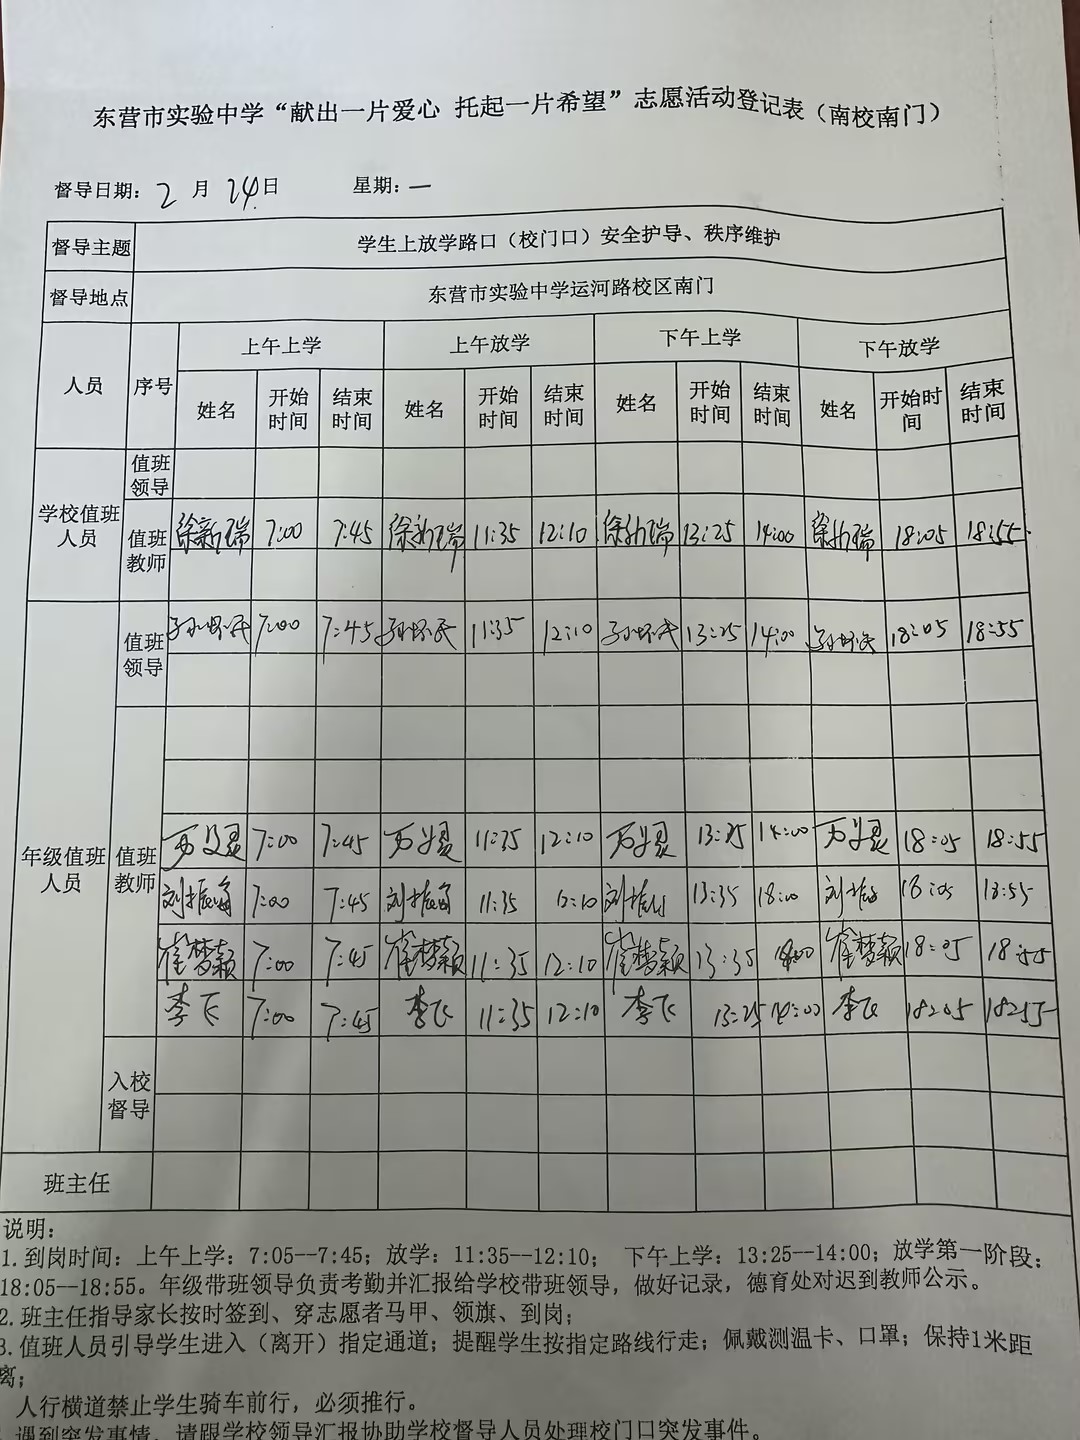 东营市实验中学“献出一片爱心 托起一片希望”志愿活动登记表（南校南门）
督导日期：2月24日 星期：一
督导主题 学生上放学路口（校门口）安全护导、秩序维护
督导地点 东营市实验中学运河路校区南门
人员 序号 上午上学 上午放学 下午上学 下午放学
姓名 开始时间 结束时间 姓名 开始时间 结束时间 姓名 开始时间 结束时间 姓名 开始时间 结束时间
学校值班人员 值班领导
值班教师 徐新瑞 7:00 7:45 徐新瑞 11:35 12:10 徐新瑞 13:25 14:00 徐新瑞 18:05 18:55
年级值班人员 值班领导 7:00 7:45 11:35 12:10 13:25 14:00 18:05 18:55
值班教师 7:00 7:45 11:35 12:10 13:25 14:00 18:05 18:55
刘振 7:00 7:45 刘振 11:35 12:10 刘振 13:35 18:00 刘振 18:05 18:55
崔梦颖 7:00 7:45 崔梦颖 11:35 12:10 崔梦颖 13:35 崔梦颖 18:05 18:55
李飞 7:00 7:45 李飞 11:35 12:10 李飞 13:25 14:00 李飞 18:05 18:55
入校督导
班主任
说明：
1.到岗时间：上午上学：7:05--7:45；放学：11:35--12:10； 下午上学：13:25--14:00；放学第一阶段：
18:05--18:55。年级带班领导负责考勤并汇报给学校带班领导，做好记录，德育处对迟到教师公示。
2.班主任指导家长按时签到、穿志愿者马甲、领旗、到岗；
3.值班人员引导学生进入（离开）指定通道；提醒学生按指定路线行走；佩戴测温卡、口罩；保持1米距
离；
人行横道禁止学生骑车前行，必须推行。
遇到突发事情，请跟学校领导汇报协助学校督导人员处理校门口突发事件。